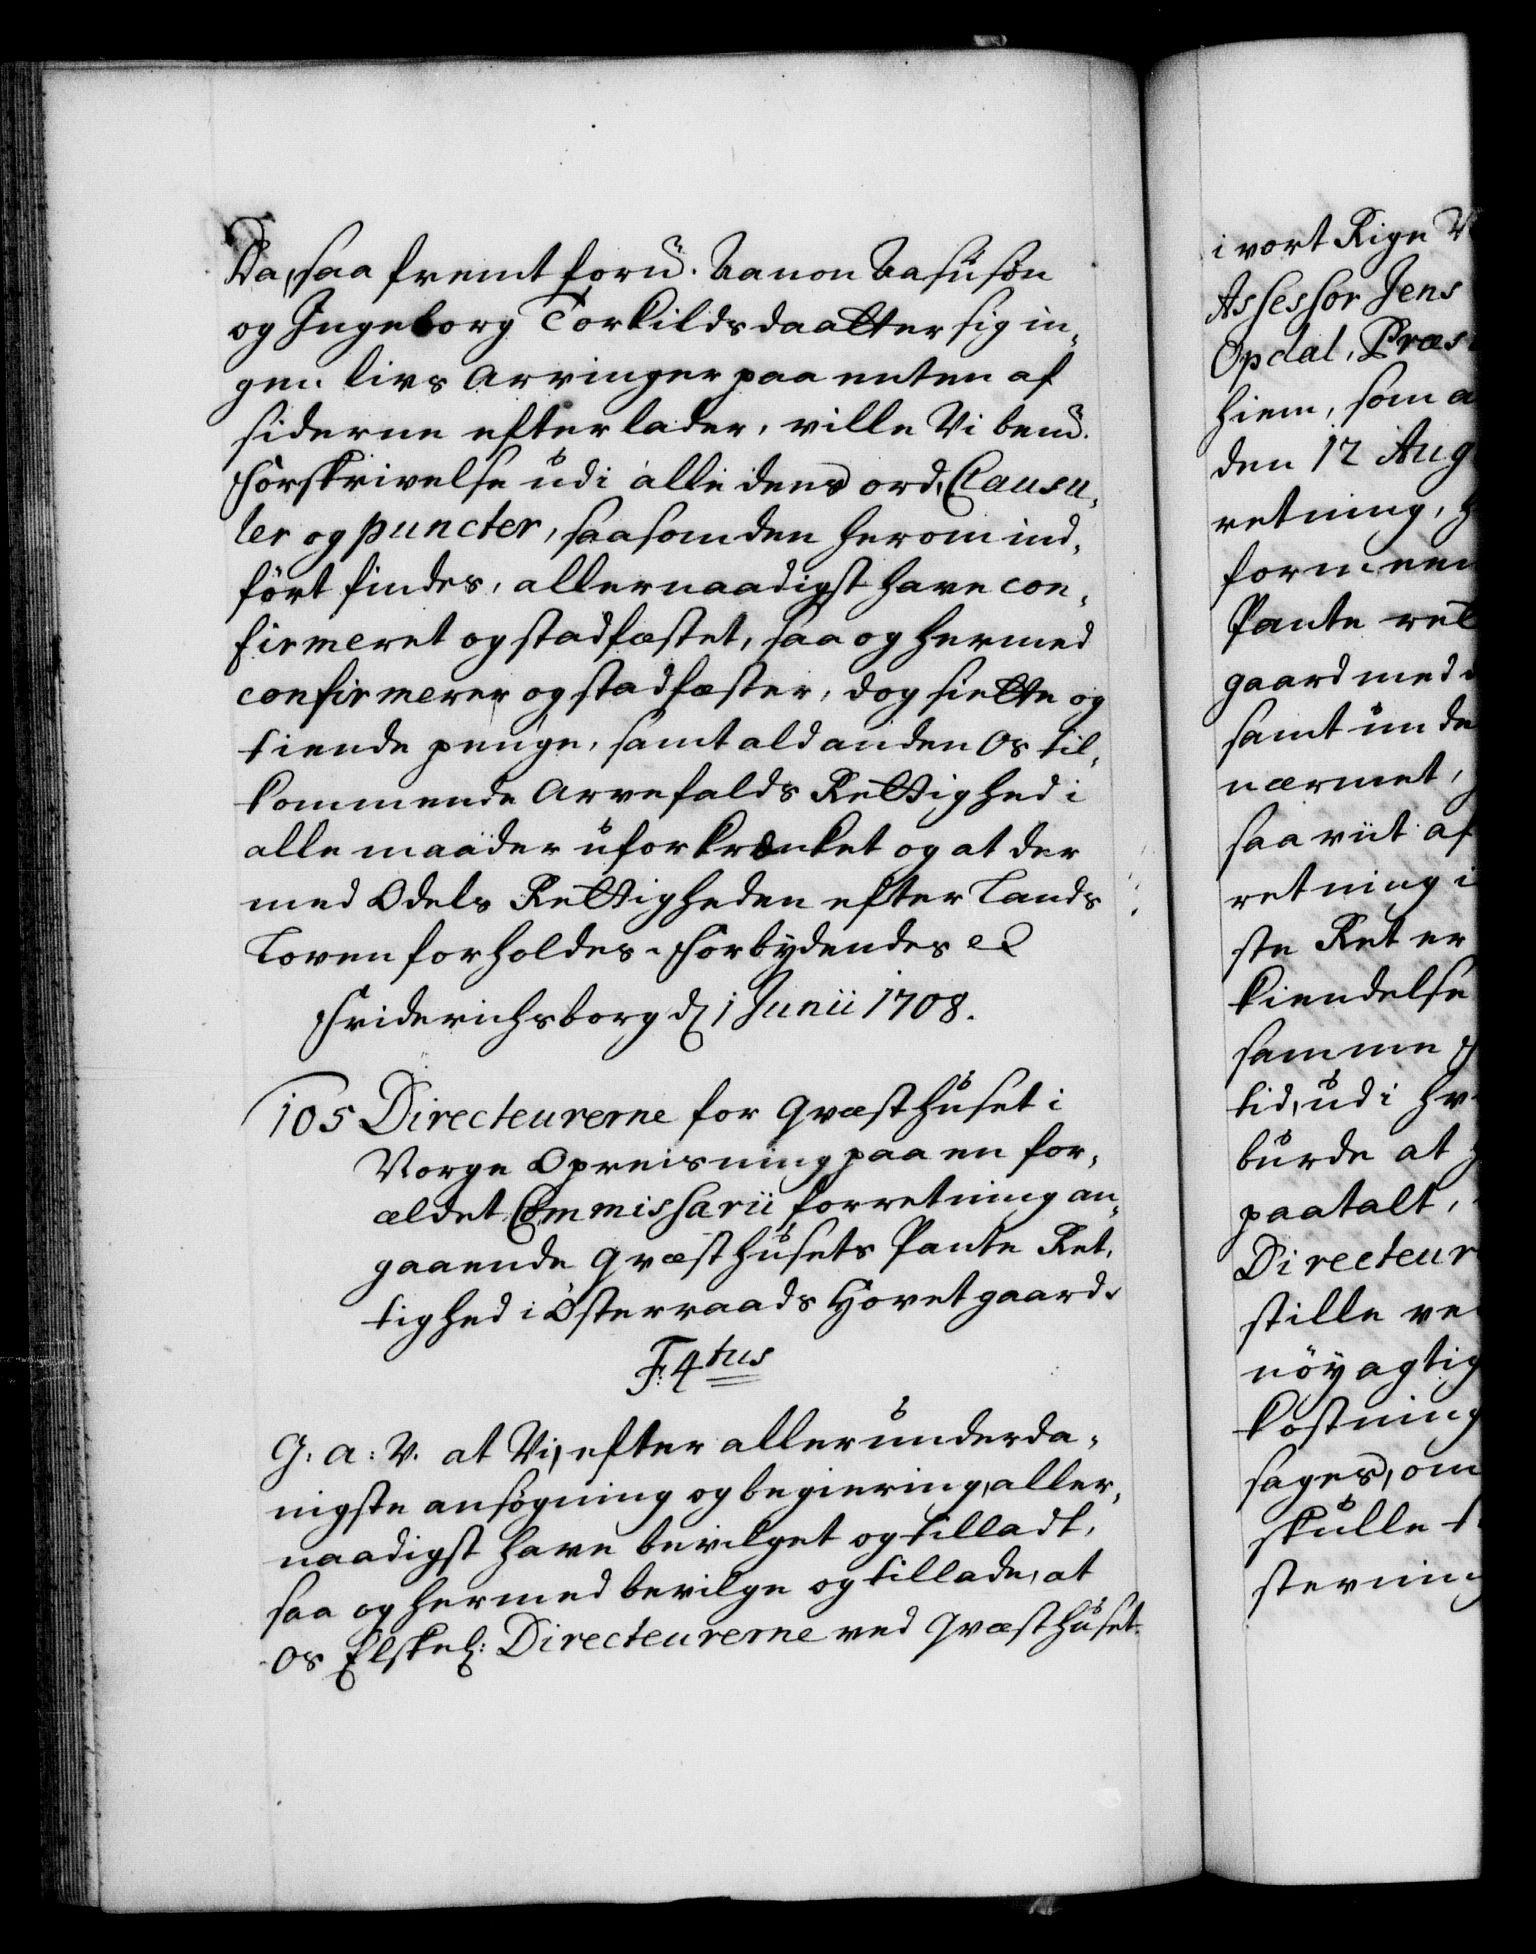 Da, saa fremt forñ. Aanon Aasusøn
og Ingeborg Torkildsdaatter sig in,
gen livs Arvinger paa enten af
siderne efterlader, ville Vi bemñ.
Forskrivelse udi alle dends ord, Clausu,
ler og puncter, saasom den herom ind,
ført findes, allernaadigst have con,
firmeret og stadfæstet, saa og hermed
confirmerer og stadfæster, dog siette og
tiende penge, samt ald anden Os til,
kommende Arvefalds Rettighed i
alle maader uforkrænket og at der
med Odels Rettigheden efter Lands
Loven forholdes. Forbydendes et
Friderichsborg d. 1 Junii 1708.
105 Directeurerne for Qvæsthuset i
Norge Opreisning paa en for,
ældet Commissarii forretning an,
gaaende Qvæsthusets Pante Ret,
tighed i Østerraads Hovetgaard.
F. 4tus
G: a: V. at Vi, efter allerunderda,
nigste ansøgning og begiering, aller,
naadigst have bevilget og tilladt,
saa og hermed bevilge og tillade, at
Os Elskel: Directeurerne ved Qvæsthuset
i vort Rige N
Assessor Jens
Opdal, Præs
hiem, som a
den 12 Aug
retning, h
formeen
Pante ret
gaard med
samt unde
nærmet,
saa viit af
retning i
ste Ret er
kiendelse
samme
tid, udi hv
burde at
paatalt,
Directeur
stille ve
nøyagtig
kostning
sages, om
skulle t
stevning